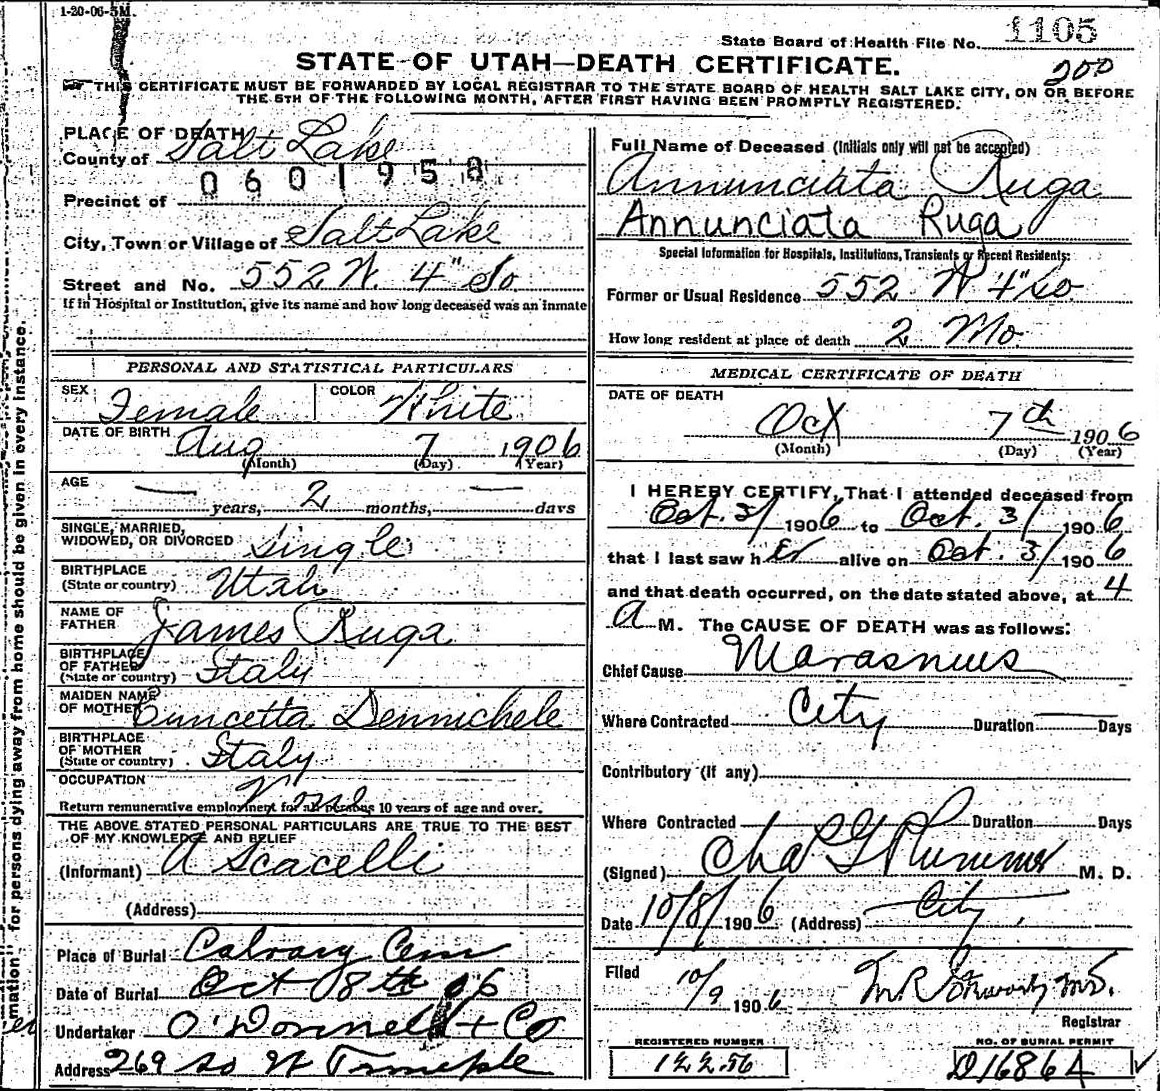 1-20-06-5M.
State Board of Health File No. 1105
STATE OF UTAH—DEATH CERTIFICATE.
200
THIS CERTIFICATE MUST BE FORWARDED BY LOCAL REGISTRAR TO THE STATE BOARD OF HEALTH SALT LAKE CITY, ON OR BEFORE
THE 5TH OF THE FOLLOWING MONTH, AFTER FIRST HAVING BEEN PROMPTLY REGISTERED.
PLACE OF DEATH
County of Salt Lake
0601958
Precinct of
City, Town or Village of Salt Lake
Street and No. 552 W. 4" So
If in Hospital or Institution, give its name and how long deceased was an inmate
PERSONAL AND STATISTICAL PARTICULARS
SEX Female COLOR White
DATE OF BIRTH Aug 7 1906
(Month) (Day) (Year)
AGE — years, 2 months, — days
SINGLE, MARRIED,
WIDOWED, OR DIVORCED Single
BIRTHPLACE
(State or country) Utah
NAME OF
FATHER James Ruga
BIRTHPLACE
OF FATHER
(State or country) Italy
MAIDEN NAME
OF MOTHER Cuncetta Dennichele
BIRTHPLACE
OF MOTHER
(State or country) Italy
OCCUPATION None
Return remunerative employment for all persons 10 years of age and over.
THE ABOVE STATED PERSONAL PARTICULARS ARE TRUE TO THE BEST
OF MY KNOWLEDGE AND BELIEF
(Informant) A Scacelli
(Address)
Place of Burial Calvary Cem
Date of Burial Oct 8th 06
Undertaker O'Donnell + Co
Address 269 So W Temple
Full Name of Deceased (Initials only will not be accepted)
Annunciata Ruga
Annunciata Ruga
Special Information for Hospitals, Institutions, Transients or Recent Residents:
Former or Usual Residence 552 W 4" So
How long resident at place of death 2 Mo
MEDICAL CERTIFICATE OF DEATH
DATE OF DEATH
Oct 7th 1906
(Month) (Day) (Year)
I HEREBY CERTIFY, That I attended deceased from
Oct. 3/ 1906 to Oct. 3/ 1906
that I last saw her alive on Oct. 3/ 1906
and that death occurred, on the date stated above, at 4
A M. The CAUSE OF DEATH was as follows:
Chief Cause Marasmus
Where Contracted City Duration — Days
Contributory (If any)
Where Contracted Duration Days
(Signed) Cha G Plummer M. D.
Date 10/8/ 1906 (Address) City
Filed 10/9 1906
Registrar
REGISTERED NUMBER
12256
NO. OF BURIAL PERMIT
D16864
mation" for persons dying away from home should be given in every instance.